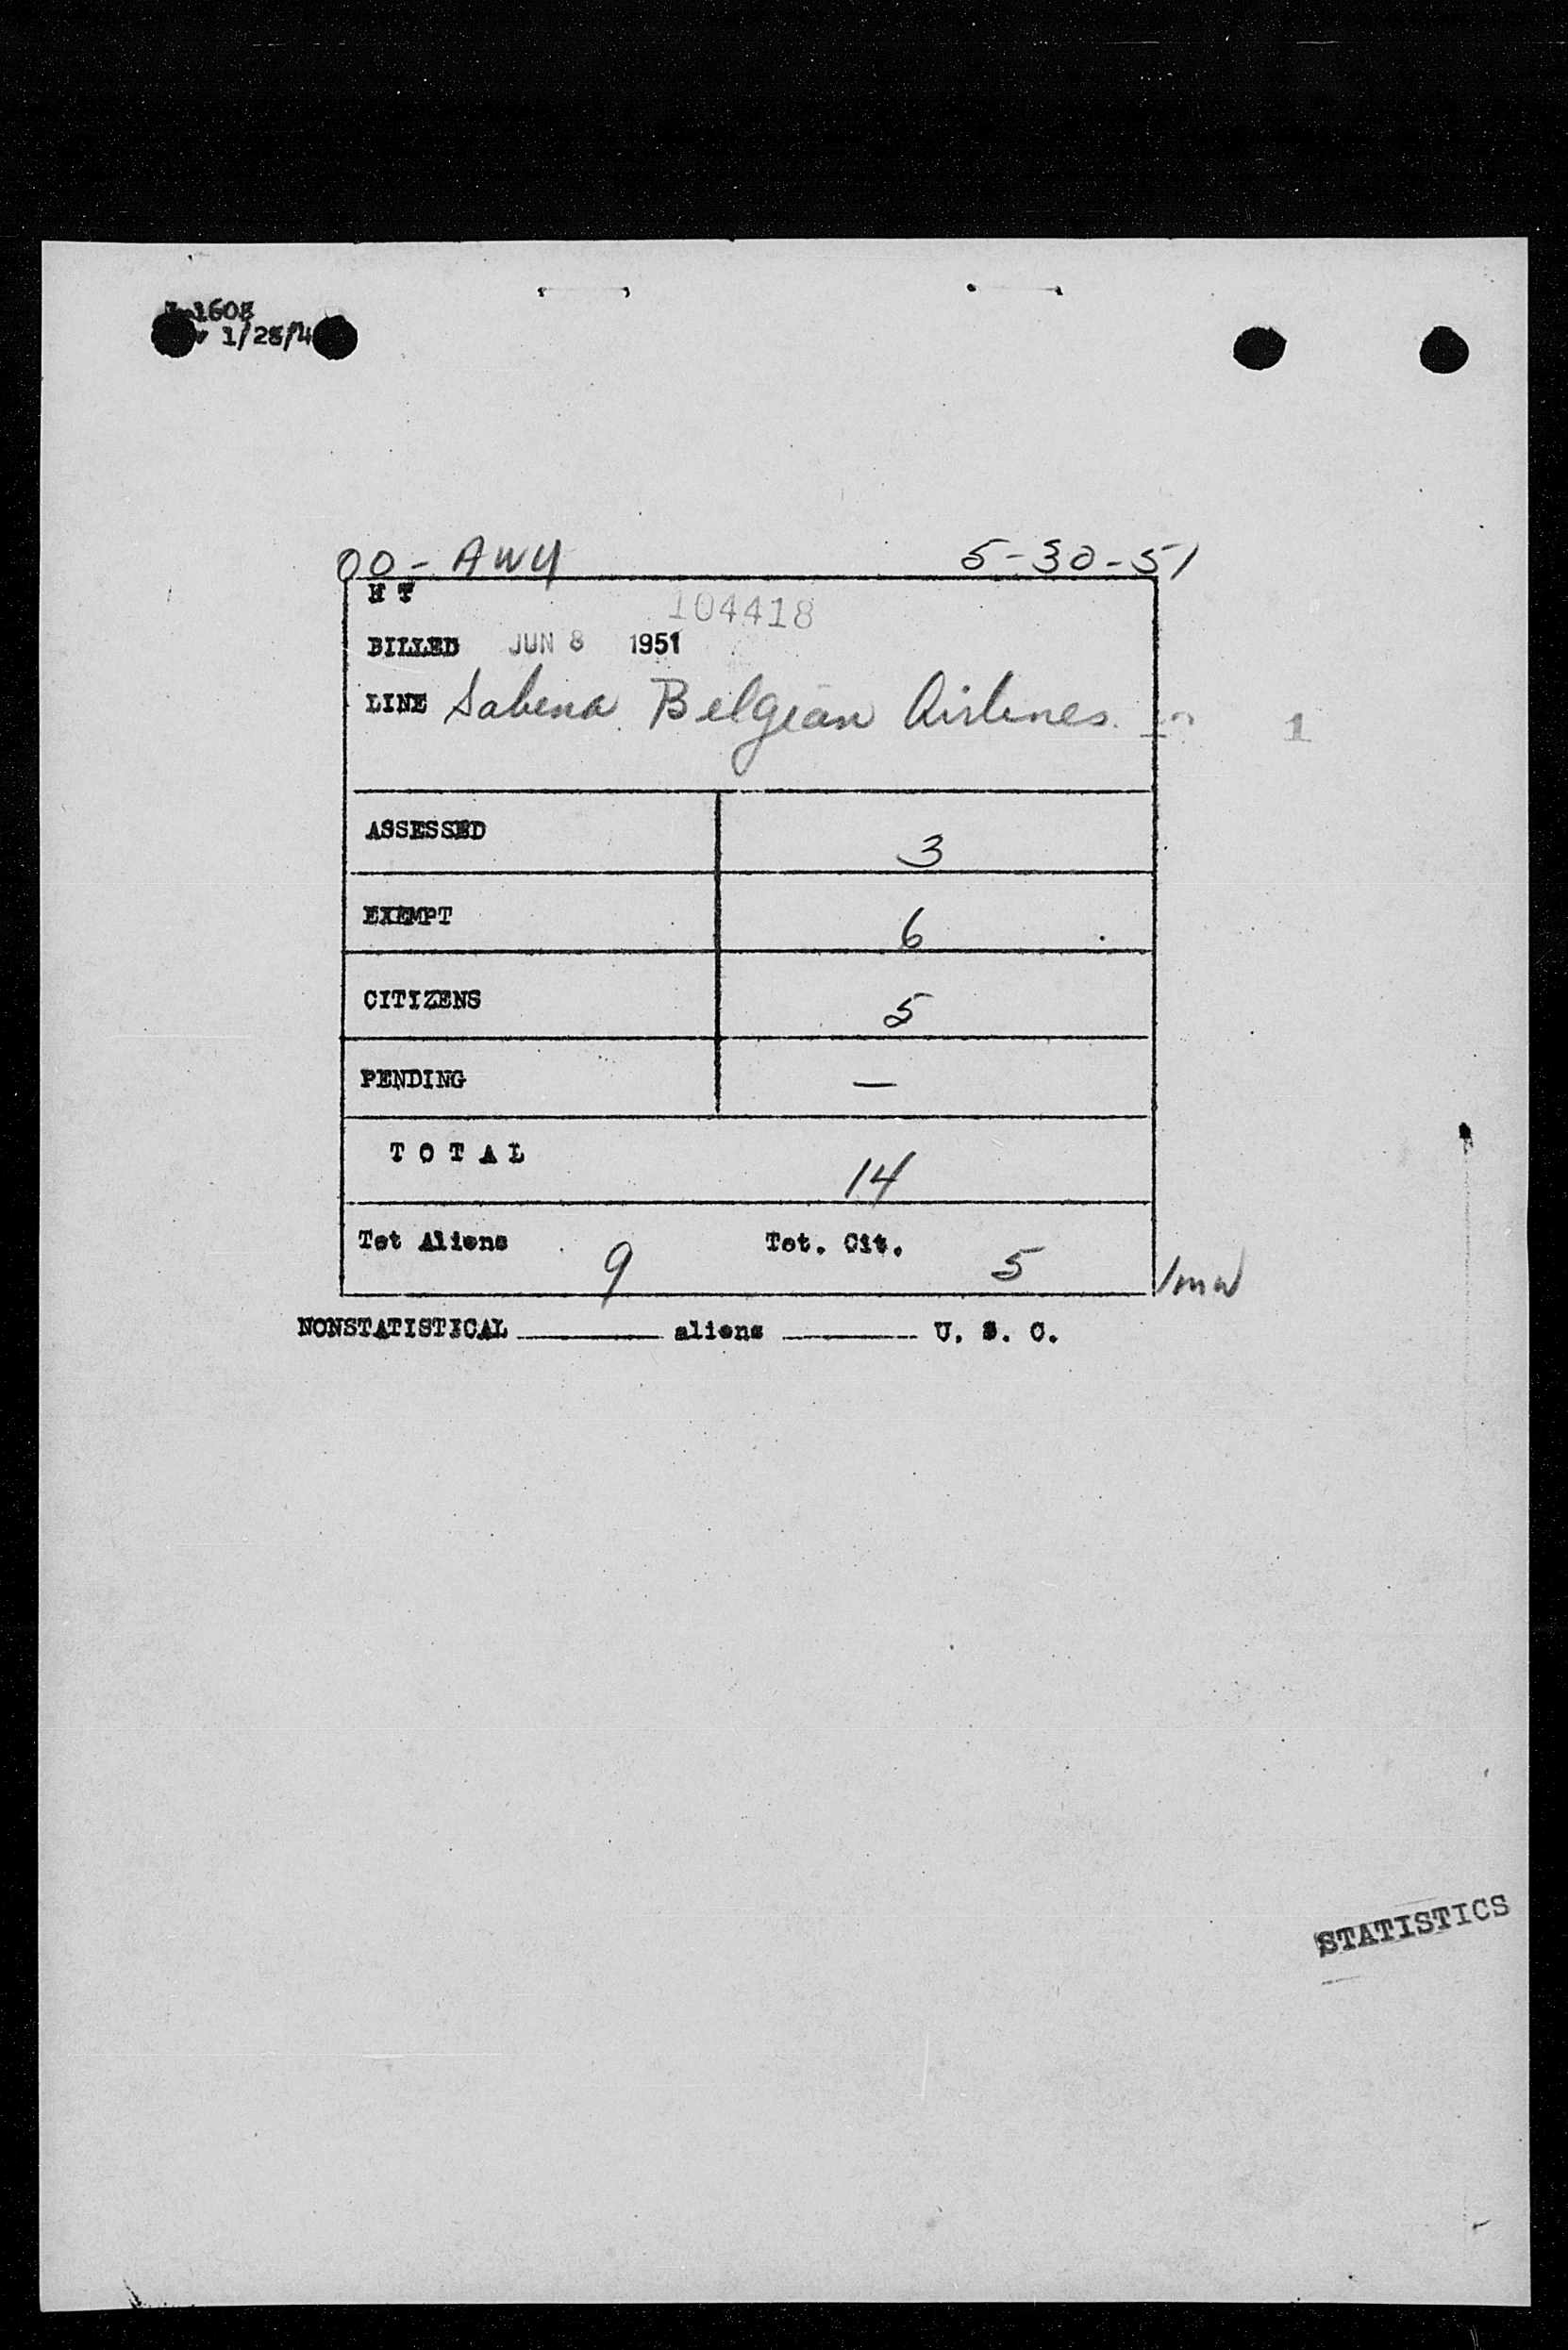 1/28/4
OO-AWY 5-30-51
H T 104418
BILLED JUN 8 1951
LINE Sabena Belgian Airlines 1
ASSESSED 3
EXEMPT 6
CITIZENS 5
PENDING —
TOTAL 14
Tot Aliens 9 Tot. Cit. 5 /mw
NONSTATISTICAL ______ aliens ______ U. S. C.
STATISTICS